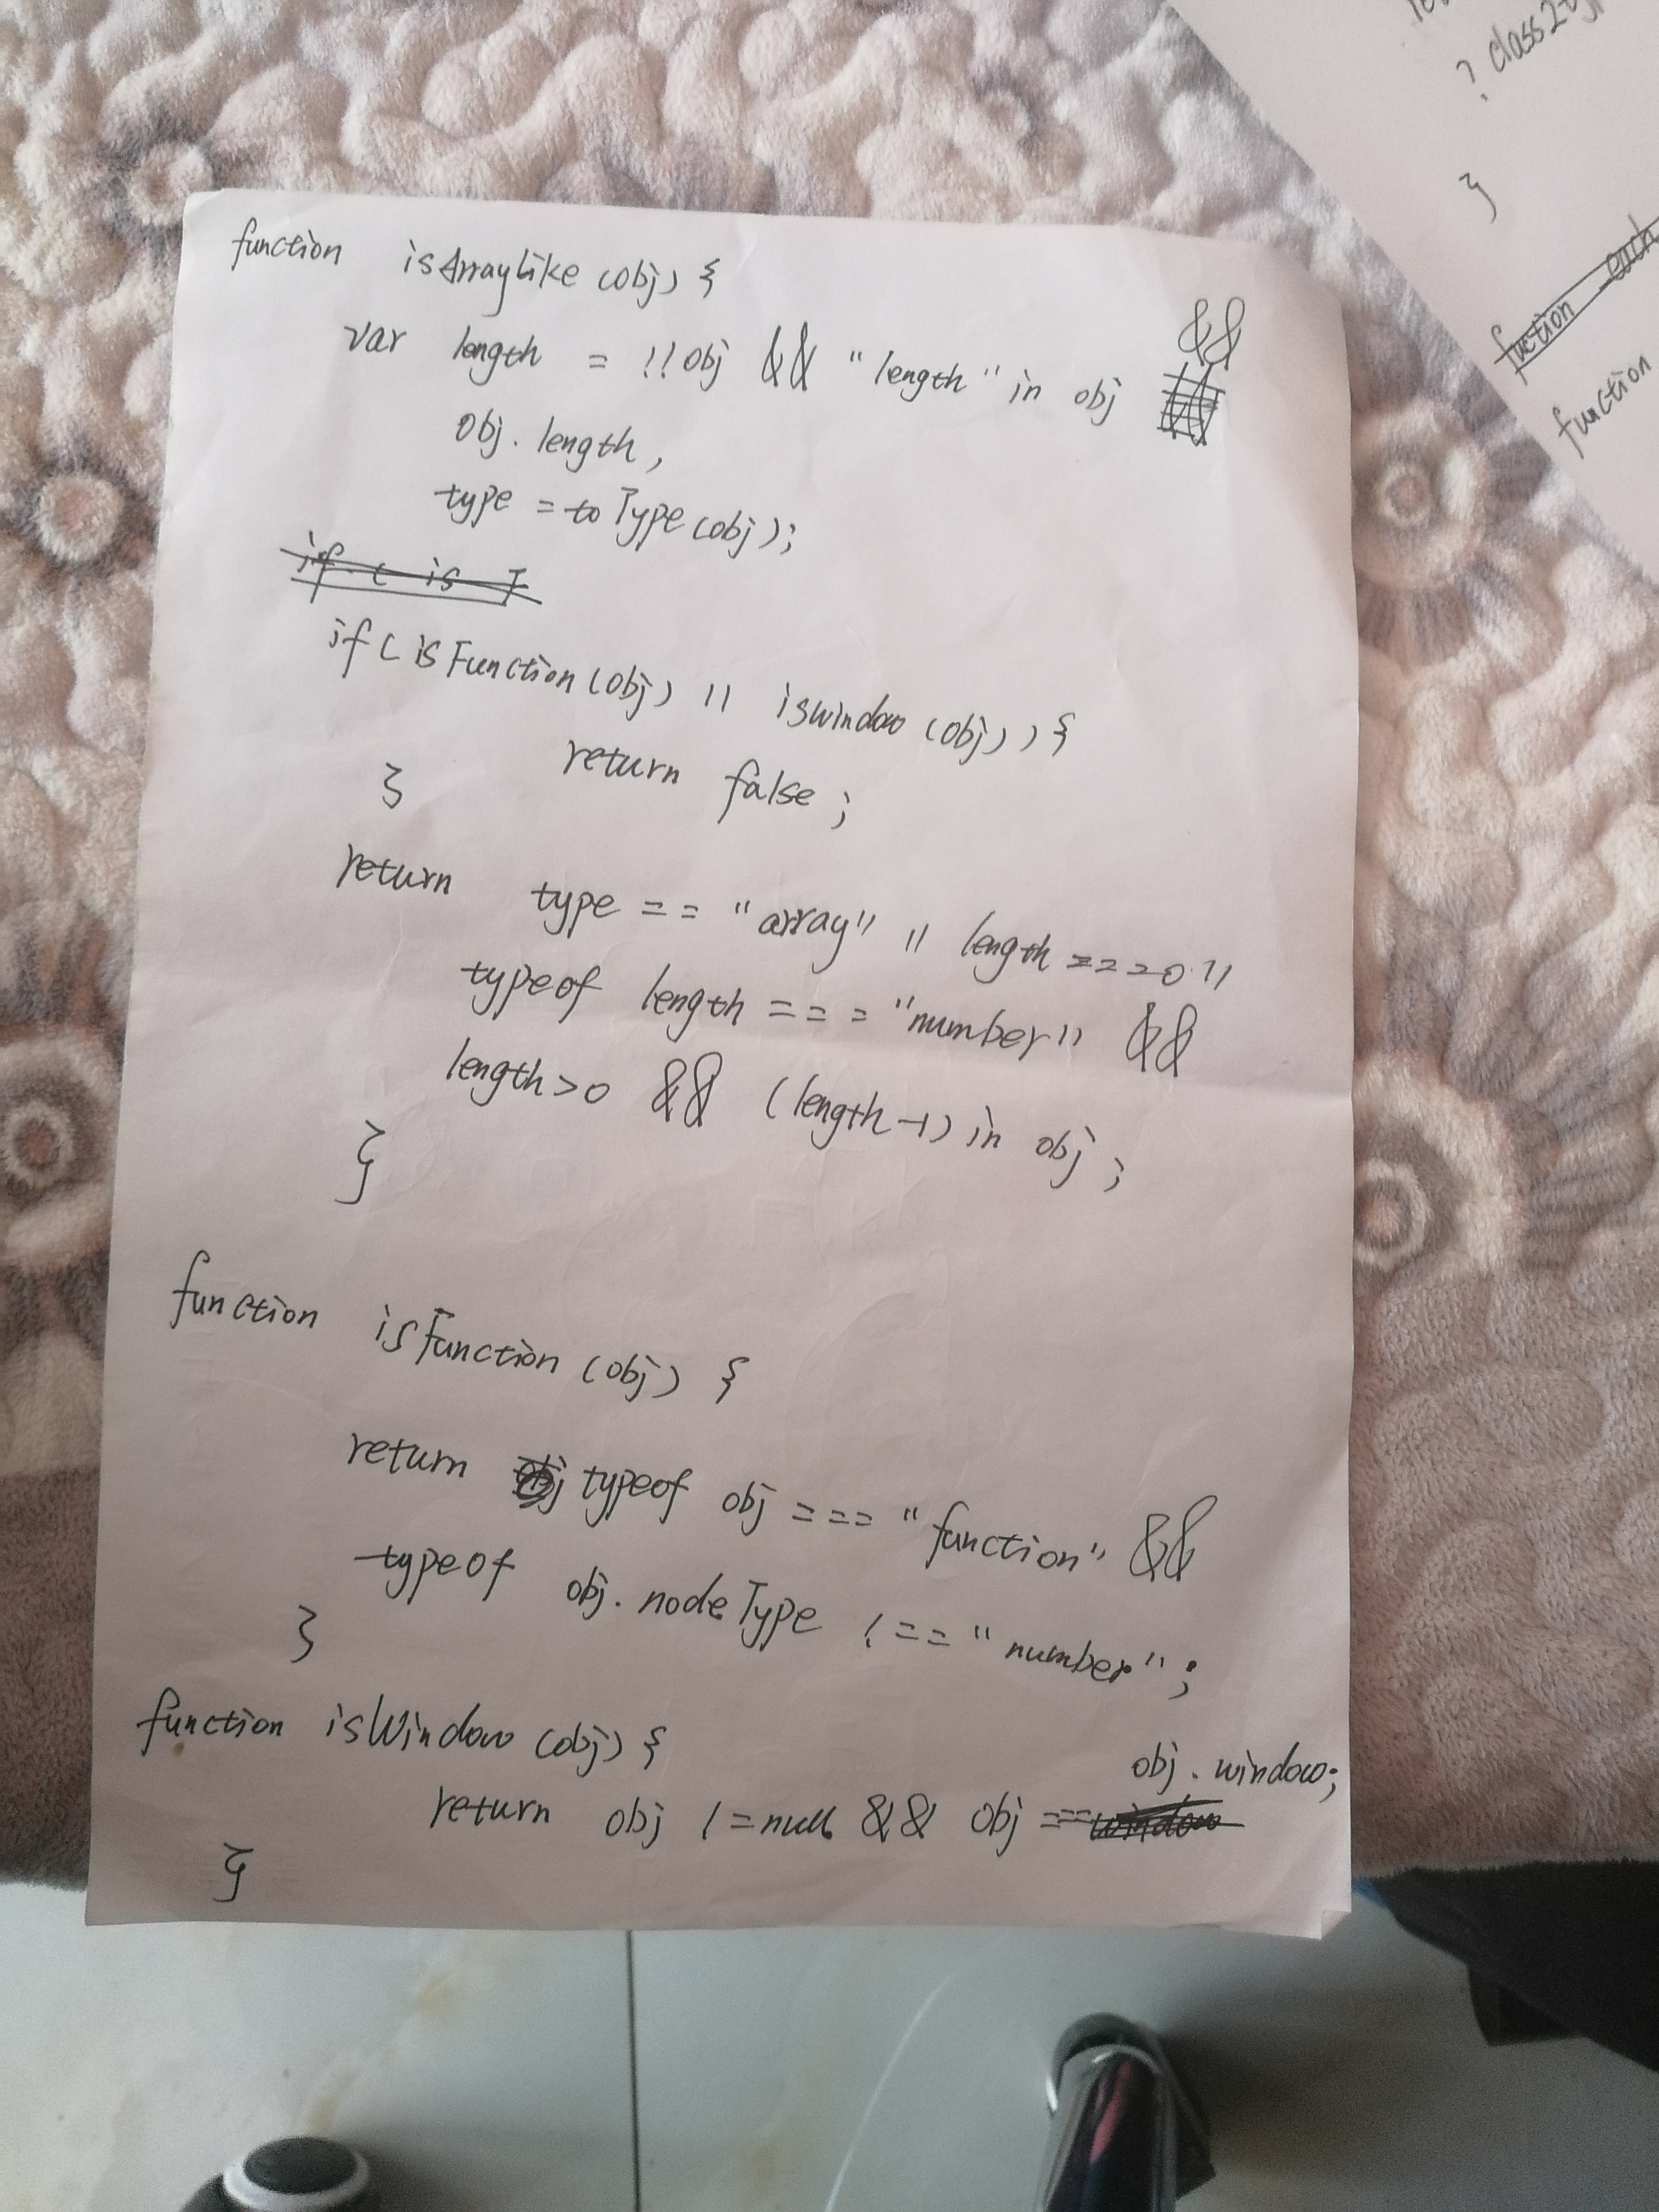 function isArrayLike (obj) {
var length = !!obj && "length" in obj &&
obj.length,
type = toType(obj);
if ( is F
if ( isFunction(obj) || iswindow (obj)) {
return false;
}
return type == "array" || length === 0 ||
typeof length === "number" &&
length>0 && (length-1) in obj;
}
function isFunction (obj) {
return obj typeof obj === "function" &&
typeof obj.nodeType !== "number";
}
function isWindow (obj) {
return obj != null && obj === window obj.window;
}
? class2ty
}
function each
function